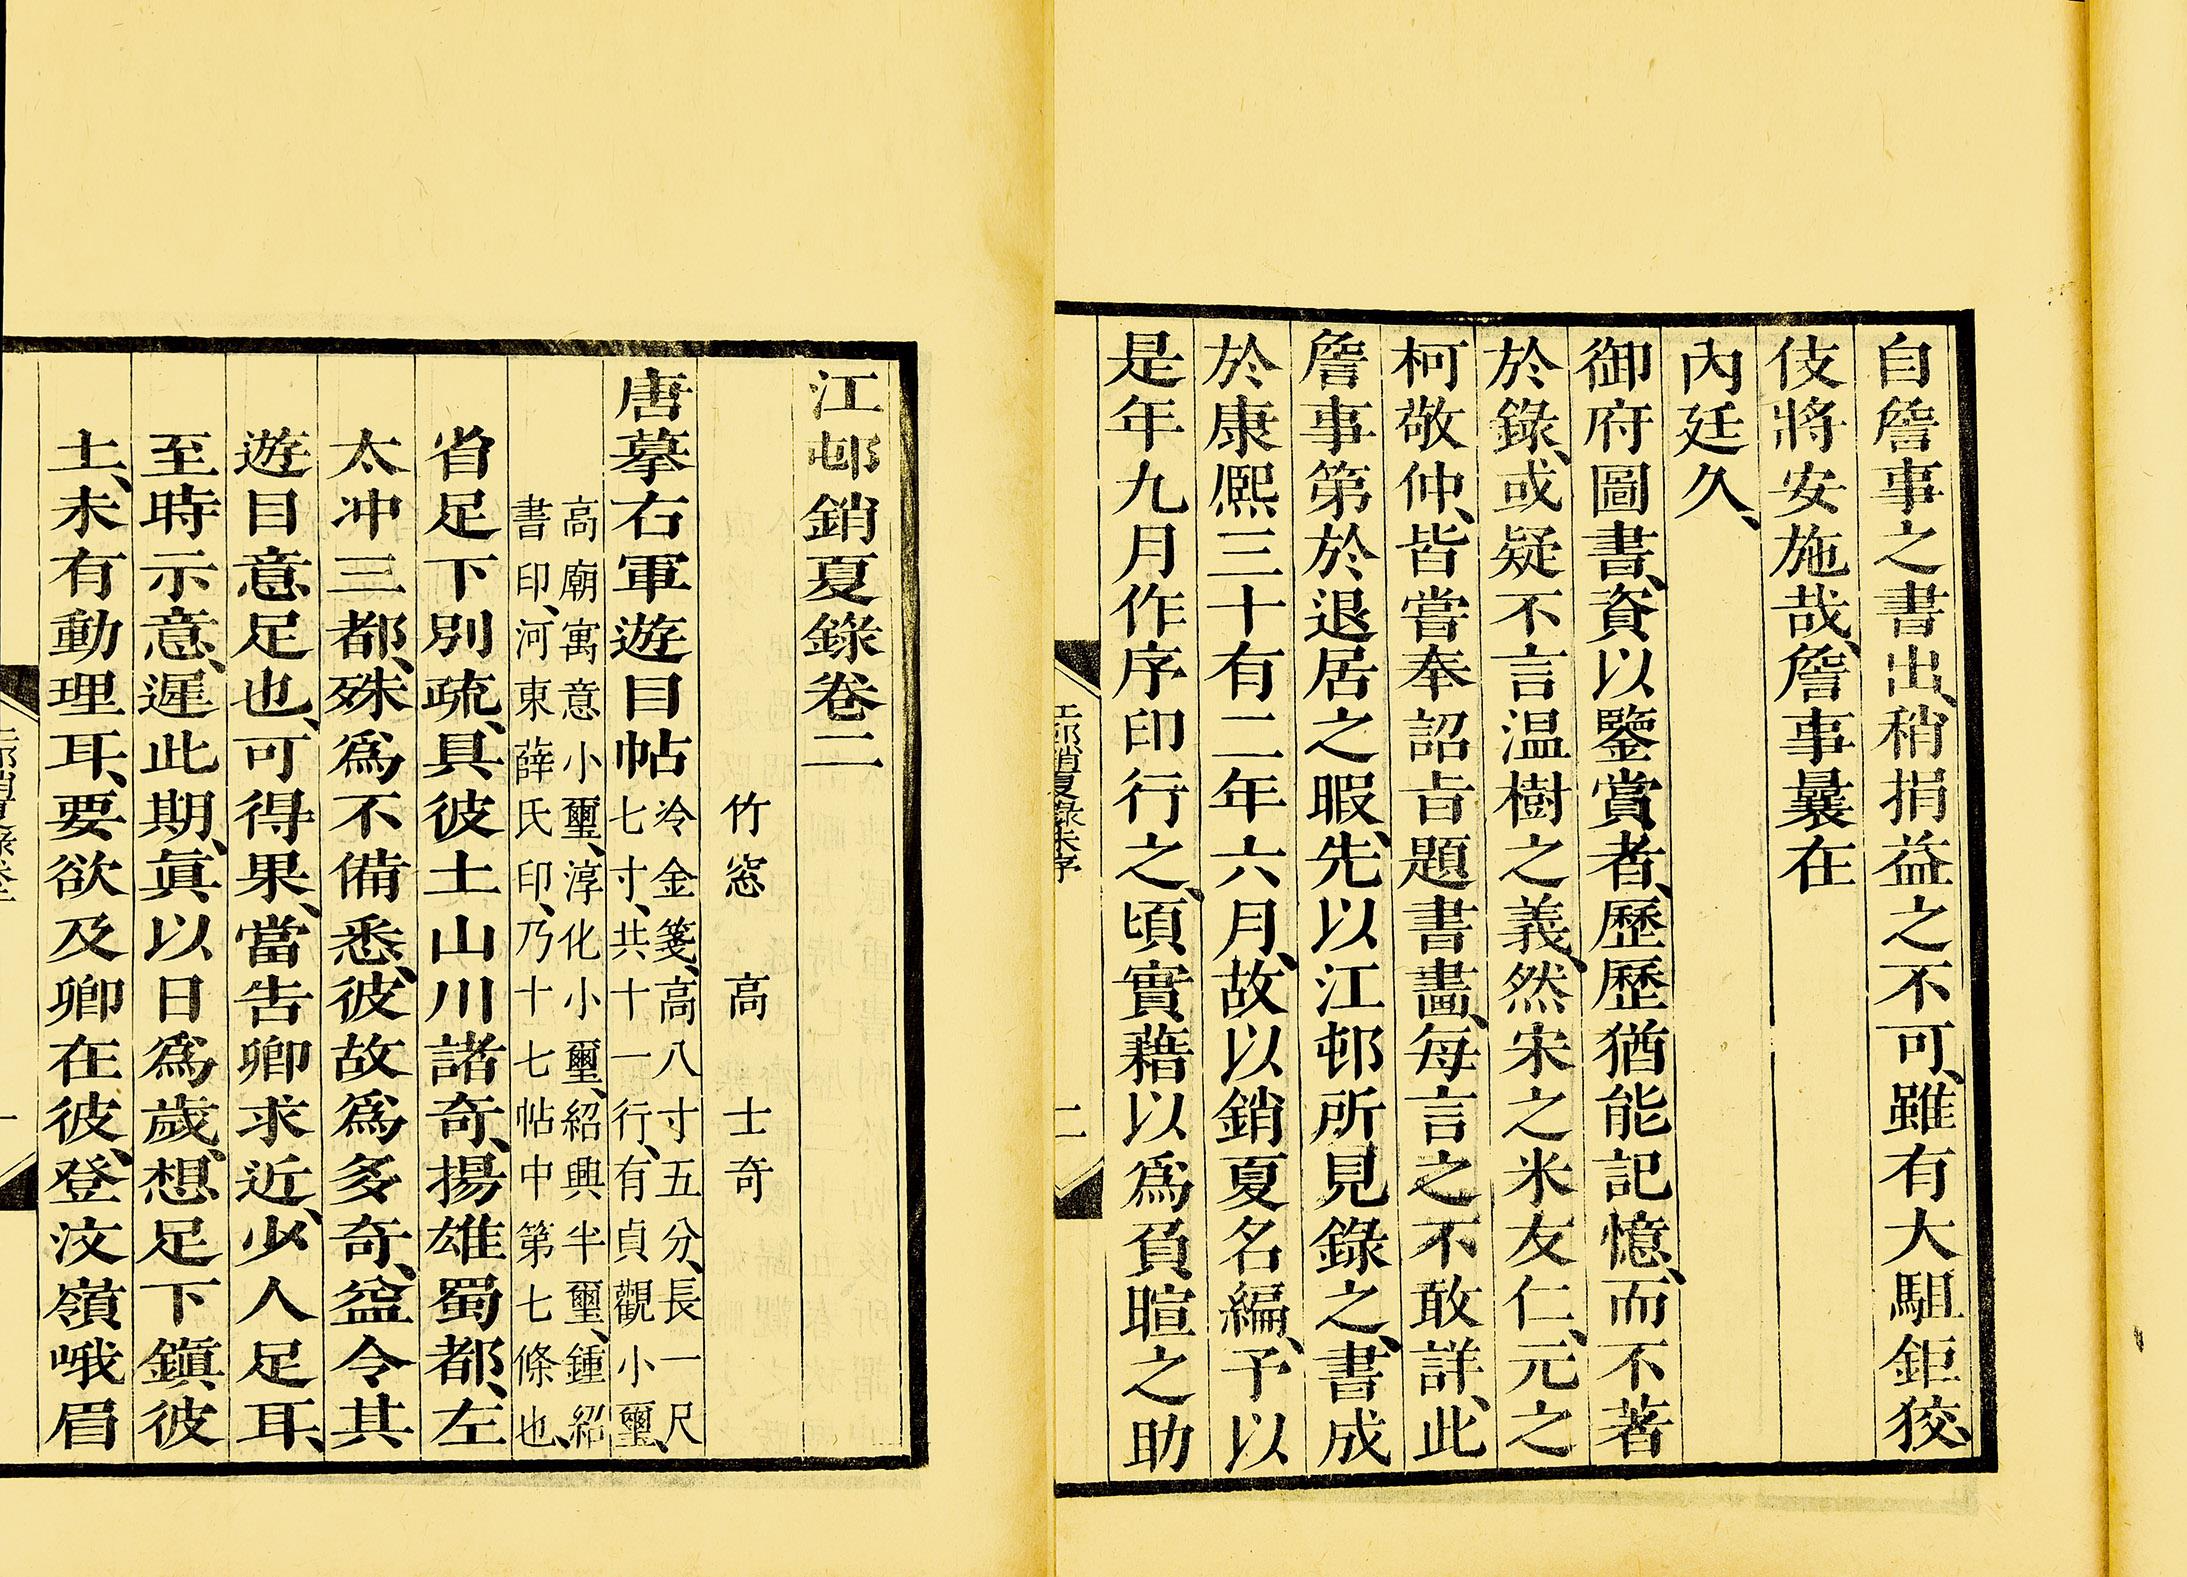 自詹事之書出、稍捐益之不可、雖有大駔鉅狡、
伎將安施哉、詹事曩在
內廷久、
御府圖書、資以鑒賞者、歷歷猶能記憶、而不著
於錄、或疑不言温樹之義、然宋之米友仁、元之
柯敬仲、皆嘗奉詔旨題書畫、每言之不敢詳、此
詹事第於退居之暇、先以江邨所見錄之、書成
於康熙三十有二年六月、故以銷夏名編、予以
是年九月作序印行之、頃實藉以為負暄之助
江邨銷夏錄朱序
二
江邨銷夏錄卷二
竹窓 高 士奇
唐摹右軍遊目帖
冷金箋、高八寸五分、長一尺
七寸、共十一行、有貞觀小璽、
高廟寓意小璽、淳化小璽、紹興半璽、鍾紹
書印、河東薛氏印、乃十七帖中第七條也、
省足下別疏、具彼土山川諸奇、揚雄蜀都、左
太冲三都、殊為不備悉、彼故為多奇、益令其
遊目意足也、可得果、當告卿求近、少人足耳、
至時示意、遲此期、眞以日為歲、想足下鎭彼
土、未有動理耳、要欲及卿在彼、登汶嶺峨眉